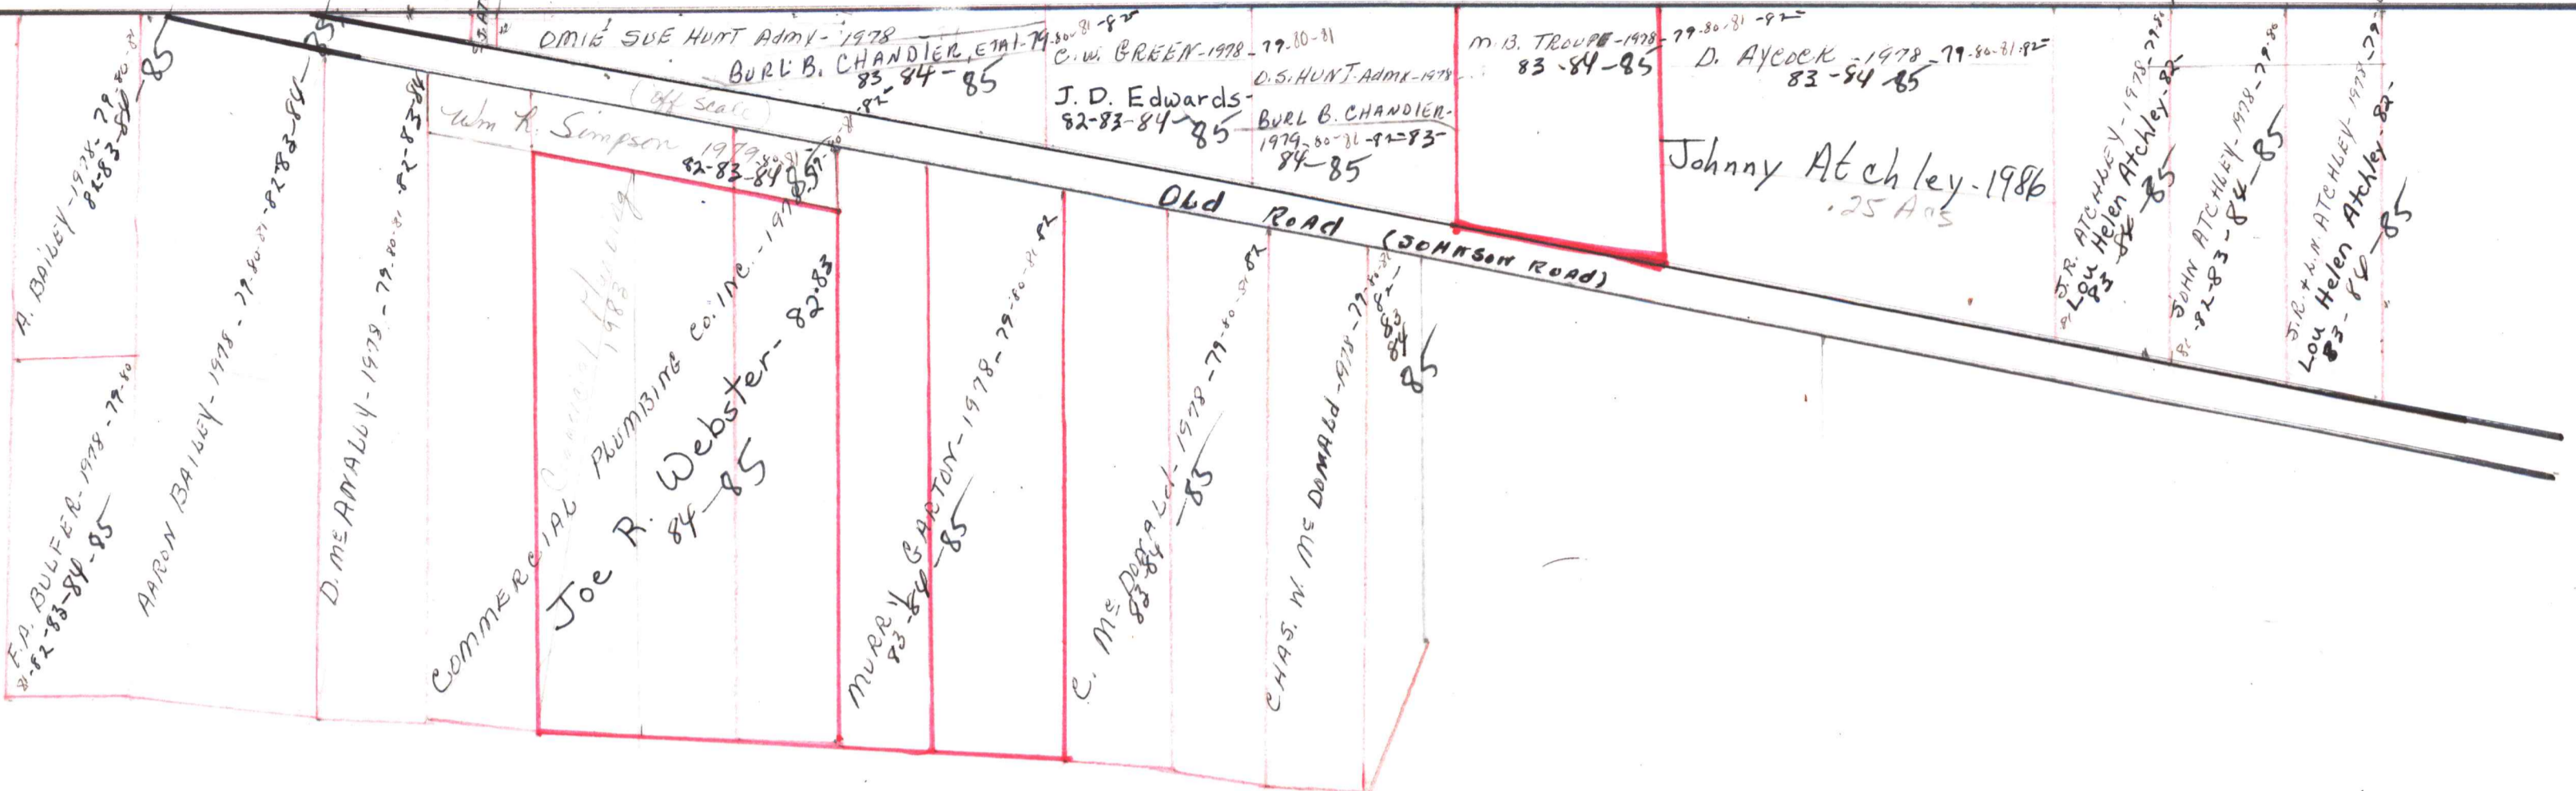 A. BAILEY-1978-79-80-81
82-83-84-85
F.A. BULFER-1978-79-80
81-82-83-84-85
AARON BAILEY-1978-79-80-81-82-83-84-85
D. McANALLY-1978-79-80-81-82-83-84
OMIE SUE HUNT Admx-1978
BURL B. CHANDLER, ETAL-79-80-81-82
83-84-85
(off scale)
Wm R. Simpson 1979-80-81-
82-83-84-85
COMMERCIAL PLUMBING CO. INC.-1978-79-80-81-82
1983
Joe R. Webster-82-83
84-85
MURRY GARTON-1978-79-80-81-82
83-84-85
C. McDONALD-1978-79-80-81-82
83-84-85
CHAS. W. McDONALD-1978-79-80-81
82-
83
84
85
C.W. GREEN-1978-79-80-81
J. D. Edwards-
82-83-84-85
O.S. HUNT-Admx-1978
BURL B. CHANDLER-
1979-80-81-82-83-
84-85
OLd ROAd (JOHNSON ROAd)
M.B. TROUPE-1978-79-80-81-82
83-84-85
D. AYCOCK-1978-79-80-81-82
83-84-85
Johnny Atchley-1986
.25 Acs
J.R. ATCHLEY-1978-79-80
81 Lou Helen Atchley-82-
83-84-85
JOHN ATCHLEY-1978-79-80
81-82-83-84-85
J.R. + L.N. ATCHLEY-1978-79-
Lou Helen Atchley-82-
83-84-85